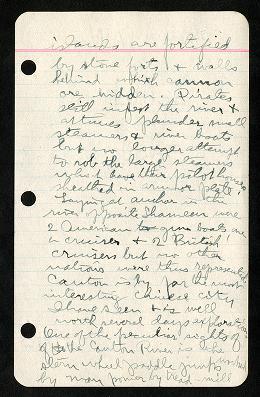 islands are fortified
by stone forts & walls
behind which cannon
are hidden. Pirates
still infest the river &
at times plunder small
steamers & river boats
but no longer attempt
to rob the large steamers
which have their pilot houses
sheathed in armor plate.
Laying at anchor in the
river opposite Shameen were
2 American gun boats &
a cruiser & 2 British
cruisers but no other
nations were thus represented
Canton is by far the most
interesting Chinese city
I have seen & is well
worth several days exploration
One of the peculiar sights of
of the Canton River is the
stern wheel paddle junks worked
by man power by tread-mill